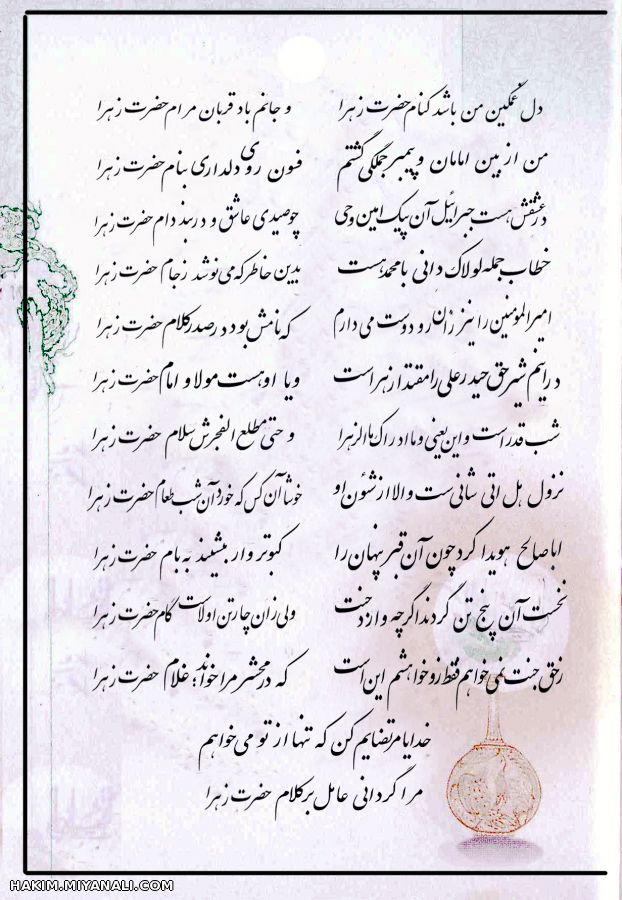 دل غمگین من باشد کنام حضرت زهرا    و جانم باد قربان مرام حضرت زهرا
من از بین امامان و پیمبر جملگی گشتم    فنون روی دلداری بنام حضرت زهرا
در عشقش هست جبرائیل آن پیک امین وحی    چو صیدی عاشق و در بند دام حضرت زهرا
خطاب جمله لولاک دانی با محمد هست    بدین خاطر که می نوشد ز جام حضرت زهرا
امیرالمؤمنین را نیز زان رو دوست می دارم    که نامش بود در صدر کلام حضرت زهرا
در اینم شیر حق حیدر علی را مقتدا زهراست    و یا او هست مولا و امام حضرت زهرا
شب قدر است و این یعنی و ما ادراک ما الزهرا    و حتی مطلع الفجرش سلام حضرت زهرا
نزول هل اتی شانی ست والا از شئون او    خوشا آن کس که خورد آن شب طعام حضرت زهرا
اباصالح هویدا کرد چون آن قبر پنهان را    کبوتر وار بنشیند به بام حضرت زهرا
نخست آن پنج تن گردند اگرچه وارد جنت    ولی زان چارتن اولاست گام حضرت زهرا
ز حق جنت نمی خواهم فقط زو خواهشم این است    که در محشر مرا خواند؛ غلام حضرت زهرا
خدایا مرتضایم کن که تنها از تو می خواهم
مرا گردانی عامل بر کلام حضرت زهرا
HAKIM.MIYANALI.COM